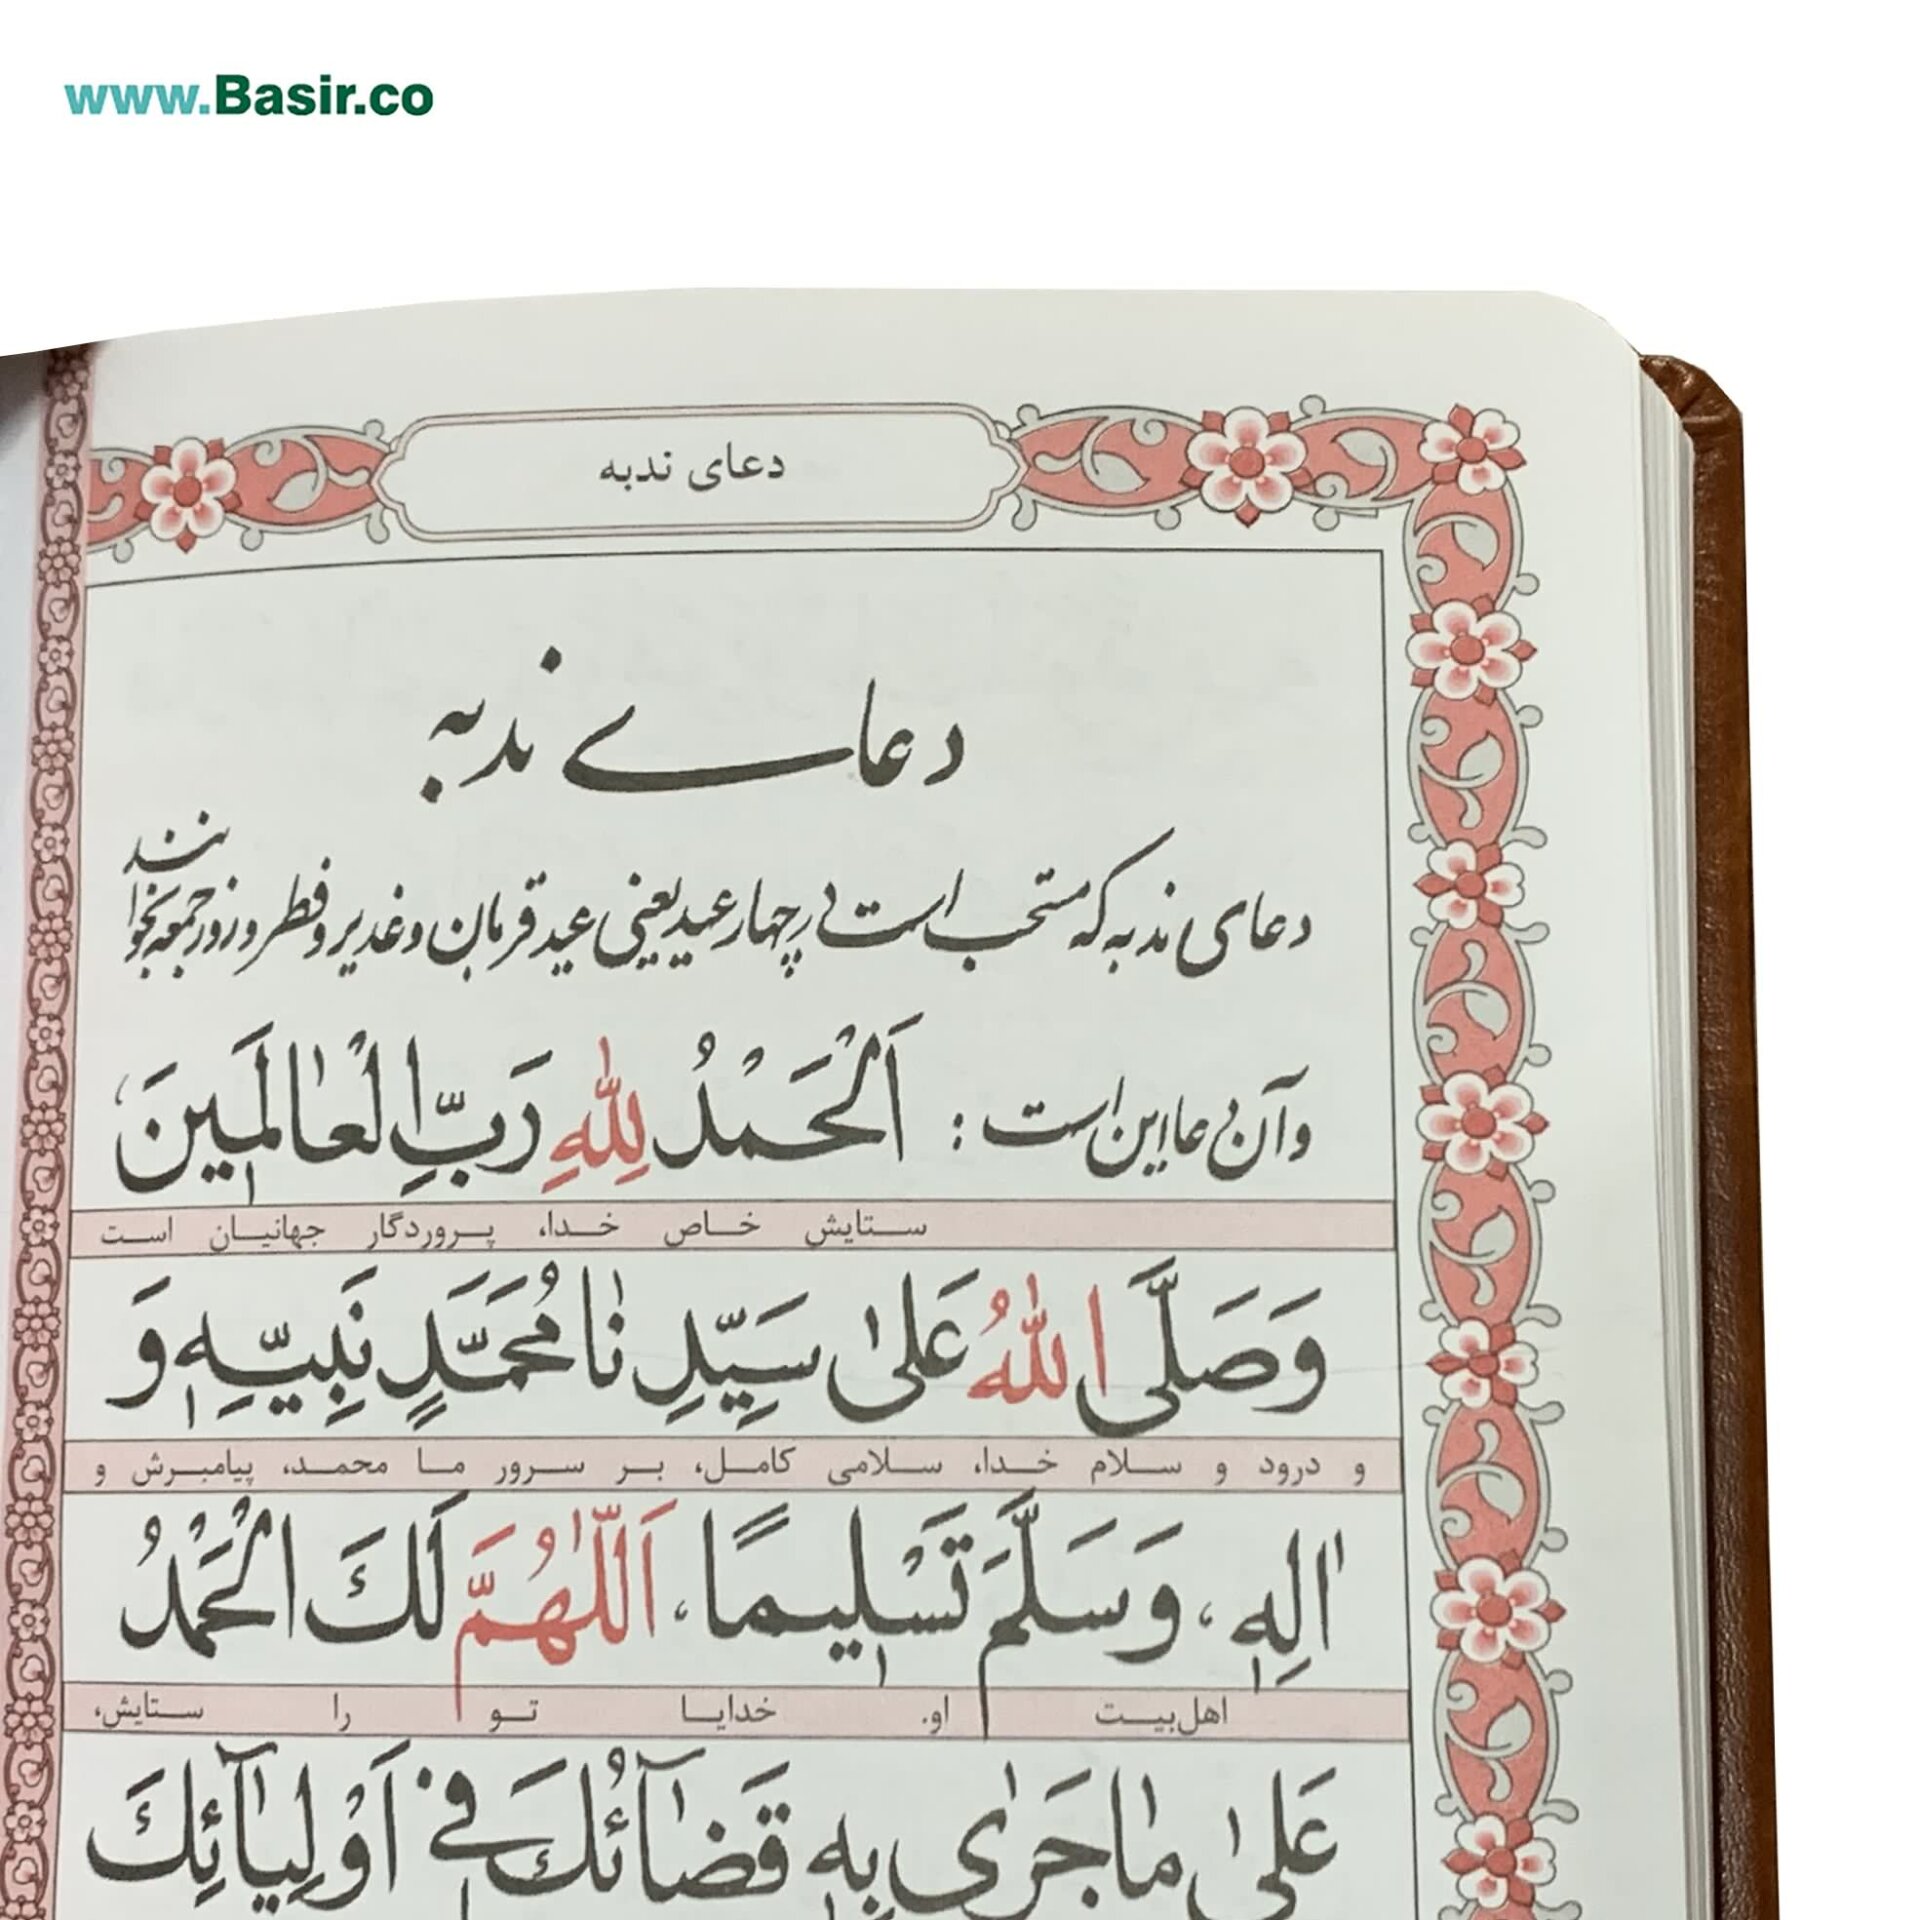 www.Basir.co
دعای ندبه
دعاے ندبه
دعای ندبه که مستحب است در چهار عید یعنی عید قربان و غدیر و فطر و روز جمعه بخوانند
و آن دعا این است : اَلْحَمْدُ لِلّٰهِ رَبِّ الْعٰالَمينَ،
ستایش خاص خدا، پروردگار جهانیان است
وَصَلَّی اللّٰهُ عَلیٰ سَيِّدِنٰا مُحَمَّدٍ نَبِيِّهِ وَ
و درود و سلام خدا، سلامی کامل، بر سرور ما محمد، پیامبرش و
اٰلِهِ، وَسَلَّمَ تَسْليمًا، اَللّٰهُمَّ لَكَ الْحَمْدُ
اهل‌بیت او. خدایا تو را ستایش،
عَلیٰ مٰا جَرٰی بِهِ قَضٰآئُكَ في اَوْلِيٰآئِكَ